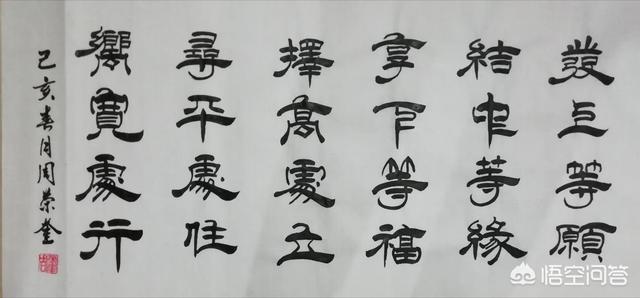 發上等願
結中等緣
享下等福
擇高處立
尋平處住
嚮寬處行
己亥春月周榮奎
悟空问答